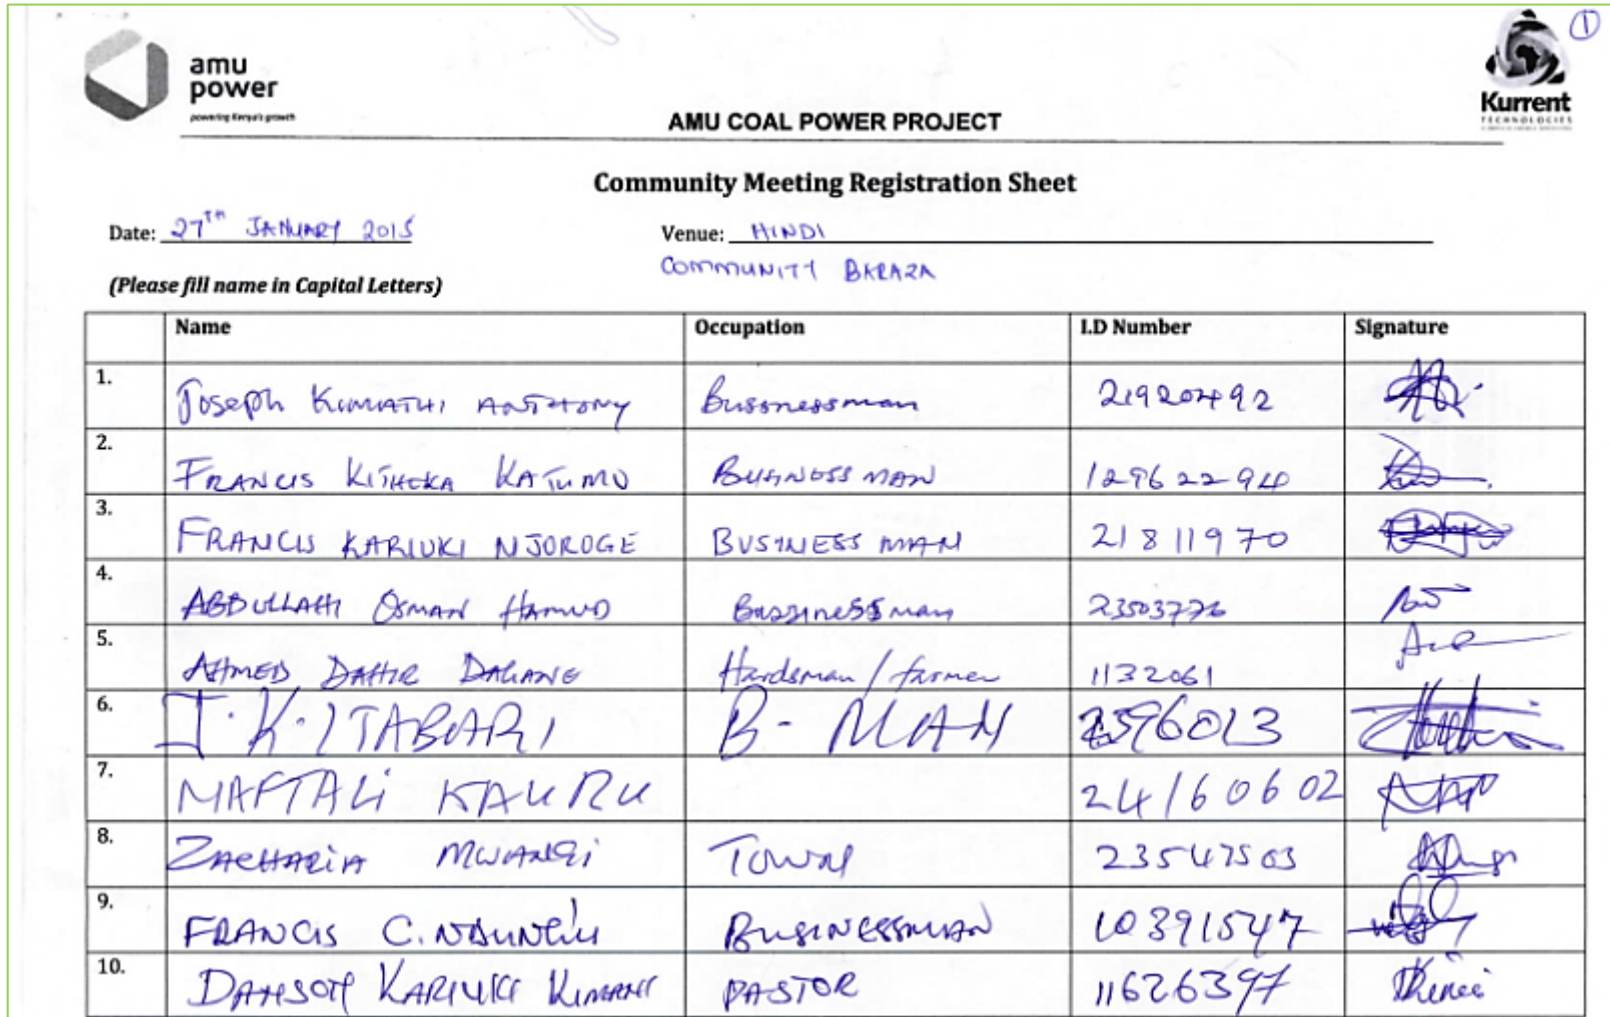 ①
amu
power
powering Kenya's growth
Kurrent
TECHNOLOGIES
AMU COAL POWER PROJECT
Community Meeting Registration Sheet
Date: 27TH JANUARY 2015 Venue: HINDI
COMMUNITY BARAZA
(Please fill name in Capital Letters)
Name Occupation I.D Number Signature
1. Joseph KIMATHI ANTHONY Bussnessman 21920492
2. FRANCIS KITHEKA KATUMO BUSINESS MAN 12962294
3. FRANCIS KARIUKI NJOROGE BUSINESS MAN 21811970
4. ABDULLAHI OSMAN HAMUD Bussinessman 23503776
5. AHMED DAHIR DAGANE Herdsman / farmer 1132061
6. J. K. ITABARI B- MAN 2396013
7. NAFTALI KAURU 24160602
8. ZACHARIA MWANGI TOWN 23547503
9. FRANCIS C. BUSINESSMAN 10391547
10. KARIUKI KIMANI PASTOR 11626397